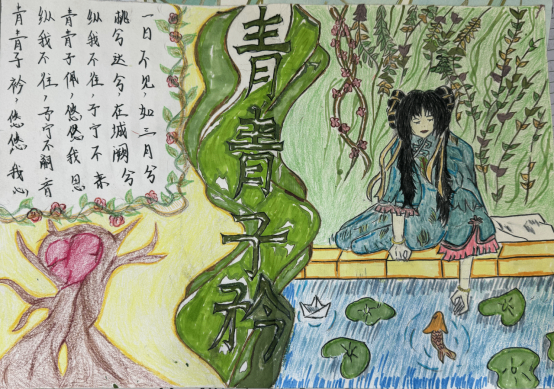 青青子衿
青青子衿，悠悠我心
纵我不往，子宁不嗣音
青青子佩，悠悠我思
纵我不往，子宁不来
挑兮达兮，在城阙兮
一日不见，如三月兮